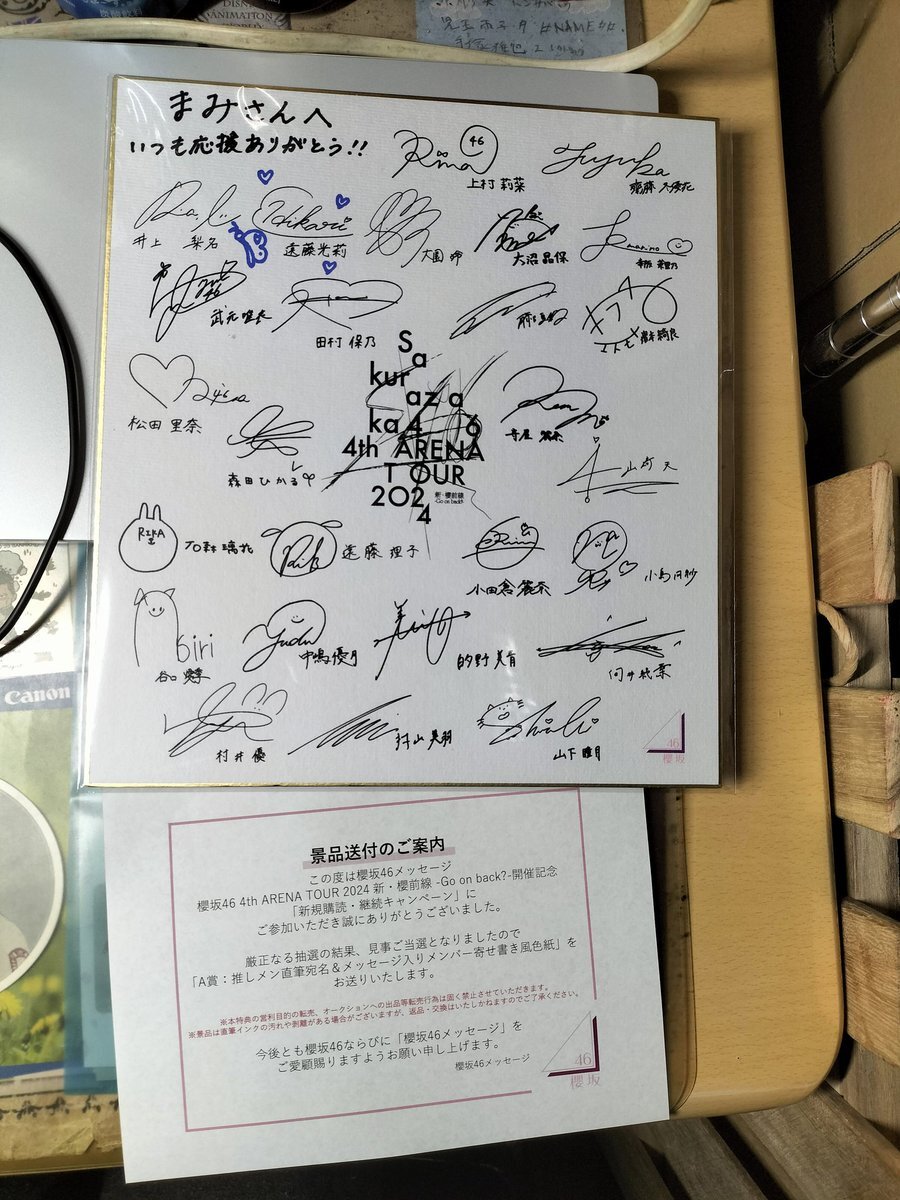 DISNEY
ANIMATION
まみさんへ
いつも応援ありがとう!!
Rina 46
上村 莉菜
Fuyuka
Hikari
井上 梨名
遠藤光莉
大園 玲
大沼晶保
marino
幸阪 茉里乃
武元唯衣
田村 保乃
松田 里奈
森田ひかる
山﨑 天
Sakurazaka46
4th ARENA
TOUR
2024
新・櫻前線
-Go on back?-
RIKA
石森 璃花
遠藤 理子
小田倉 麗奈
小島凪紗
Airi
谷口 愛季
Yuduki
中嶋優月
美青
的野 美青
向井 純葉
村井 優
村山 美羽
山下 瞳月
46
櫻坂
Canon
景品送付のご案内
この度は櫻坂46メッセージ
櫻坂46 4th ARENA TOUR 2024 新・櫻前線 -Go on back?-開催記念
「新規購読・継続キャンペーン」に
ご参加いただき誠にありがとうございました。
厳正なる抽選の結果、見事ご当選となりましたので
「A賞：推しメン直筆宛名＆メッセージ入りメンバー寄せ書き風色紙」を
お送りいたします。
※本特典の営利目的の転売、オークションへの出品等転売行為は固く禁止させていただきます。
※景品は直筆インクの汚れや剥離がある場合がございますが、返品・交換はいたしかねますのでご了承ください。
今後とも櫻坂46ならびに「櫻坂46メッセージ」を
ご愛顧賜りますようお願い申し上げます。
櫻坂46メッセージ
46
櫻坂